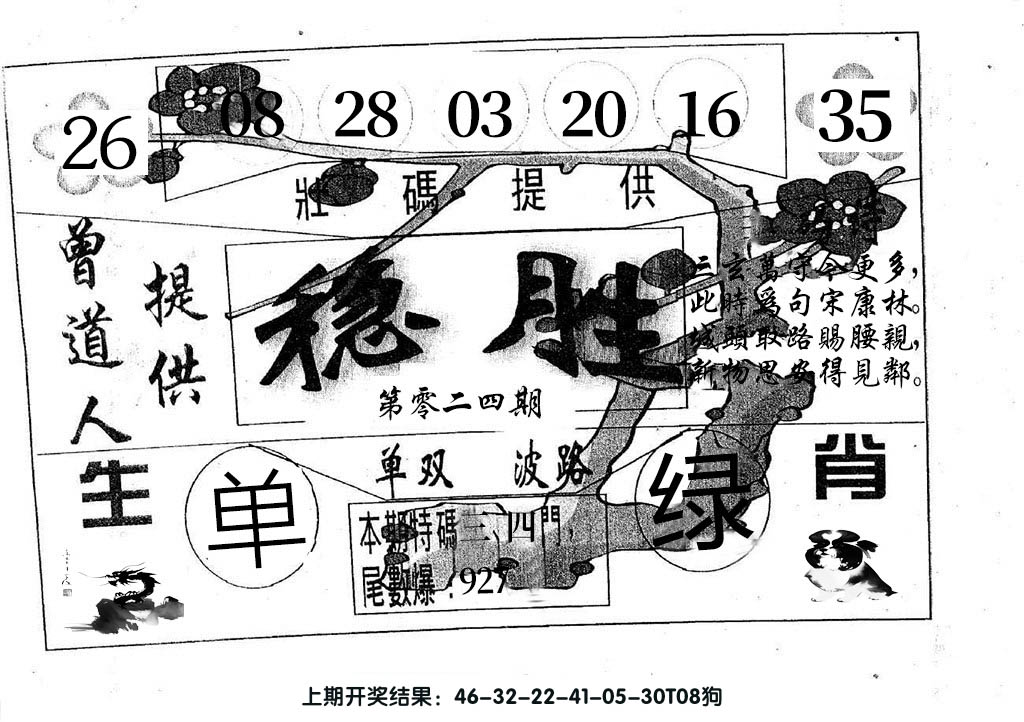 26 08 28 03 20 16 35
壯碼提供
曾道人
提供
稳胜
第零二四期
三玄萬字令更多，
此時爲句宋康林。
城頭取路賜腰親，
新物思安得見鄰。
单双 波路
生 单 绿 肖
本期特碼三、四門，
尾數爆：927
上期开奖结果：46-32-22-41-05-30T08狗